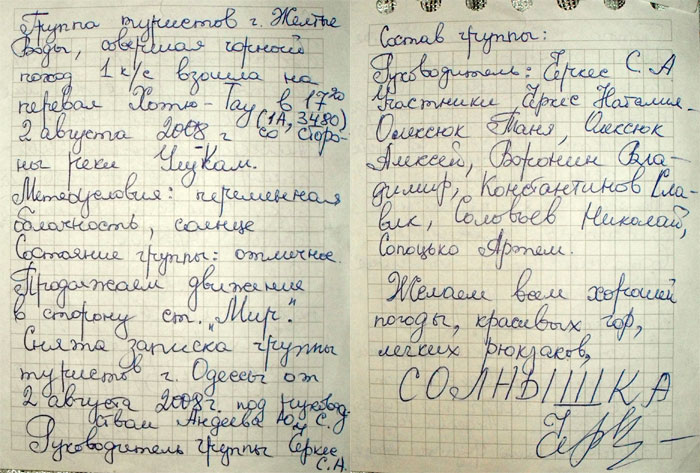 Группа туристов г. Желтые
Воды, совершая горный
поход 1 к/с взошла на
перевал Хотю-Тау в 17²⁰
(1А, 3480)
2 августа 2008 г со сторо-
ны реки Уллукам.
Метеоусловия: переменная
облачность, солнце
Состояние группы: отличное.
Продолжаем движение
в сторону ст. "Мир".
Снята записка группы
туристов г. Одессы от
2 августа 2008г. под руковод-
ством Ю. С.
Руководитель группы Черкес
С.А.
Состав группы:
Руководитель: Черкес С А
Участники Черкес Наталия
Олексюк Таня, Олексюк
Алексей, Воронин Вла-
димир, Константинов Сла-
вик, Соловьев Николай,
Сопоцько Артем.
Желаем всем хорошей
погоды, красивых гор,
легких рюкзаков,
СОЛНЫШКА